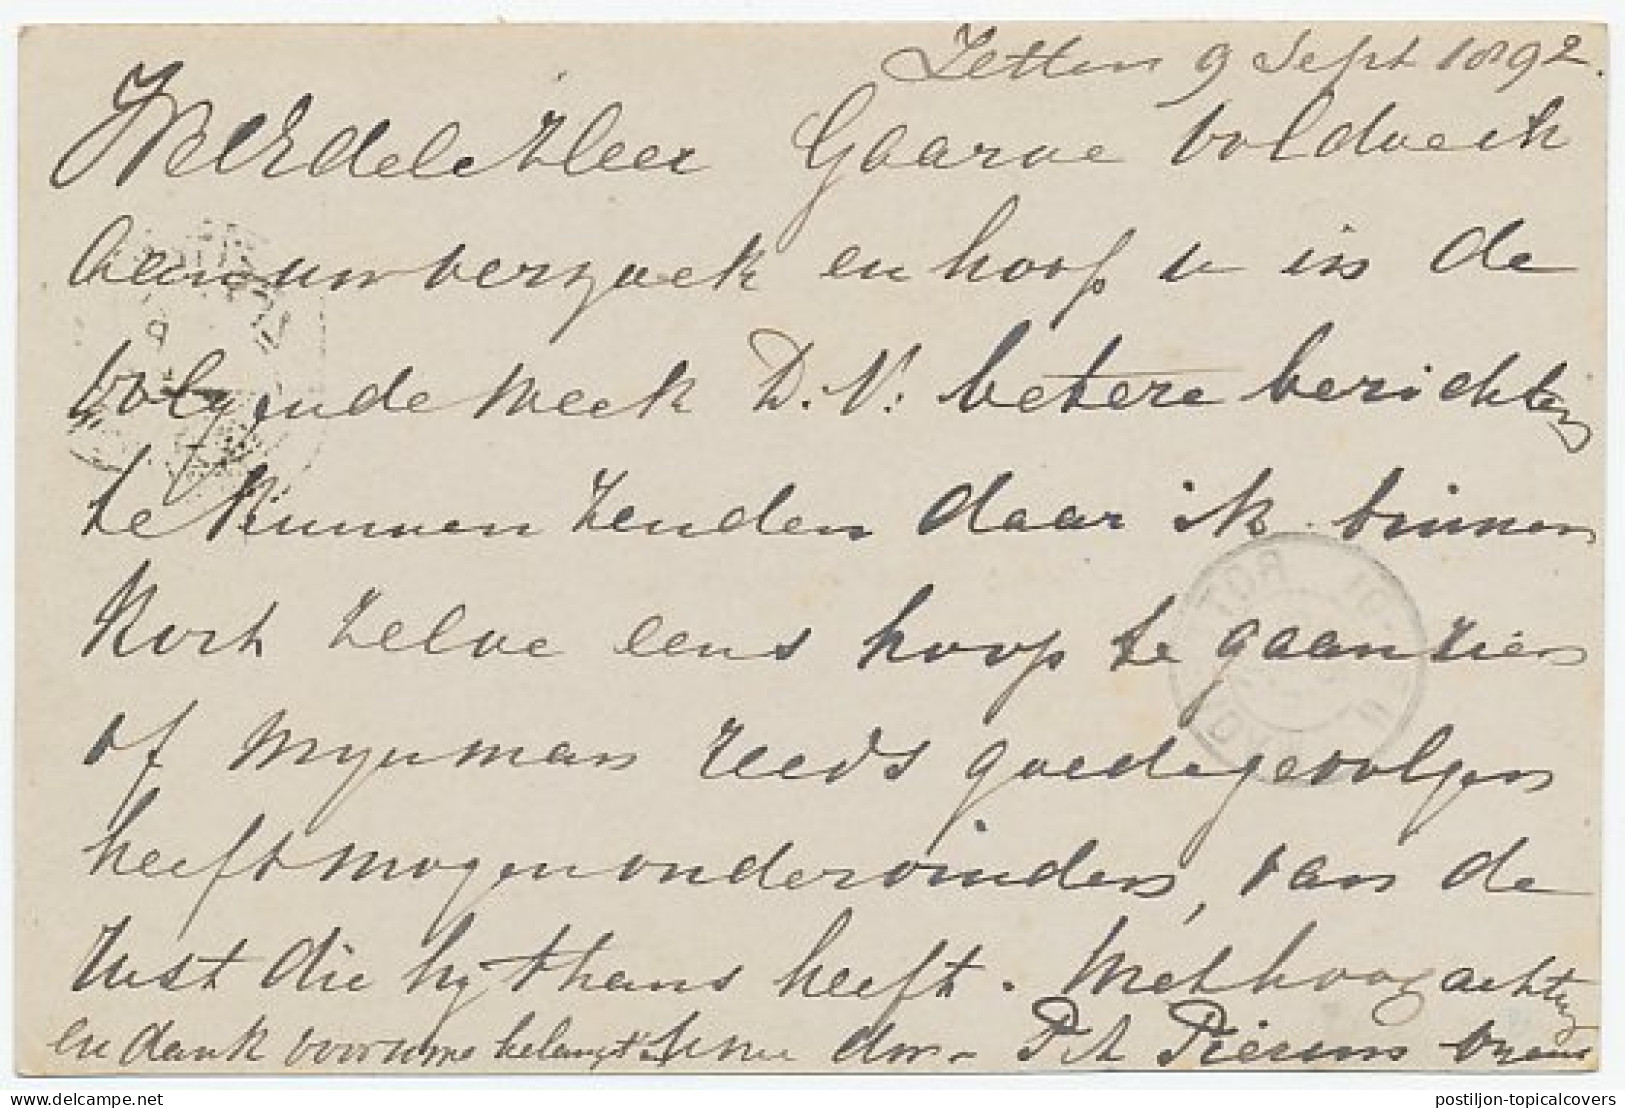 Zetten 9 Sept 1892.
WelEdele Heer Gaarne voldoe ik
aan uw verzoek en hoop u in de
volgende week D.V. betere berichten
te kunnen zenden daar ik binnen
kort zelve eens hoop te gaan zien
of mijn man reeds goede gevolgen
heeft mogen ondervinden, van de
rust die hij thans heeft. Met hoogachting
en dank voor uwe belangst.
postiljon-topicalcovers